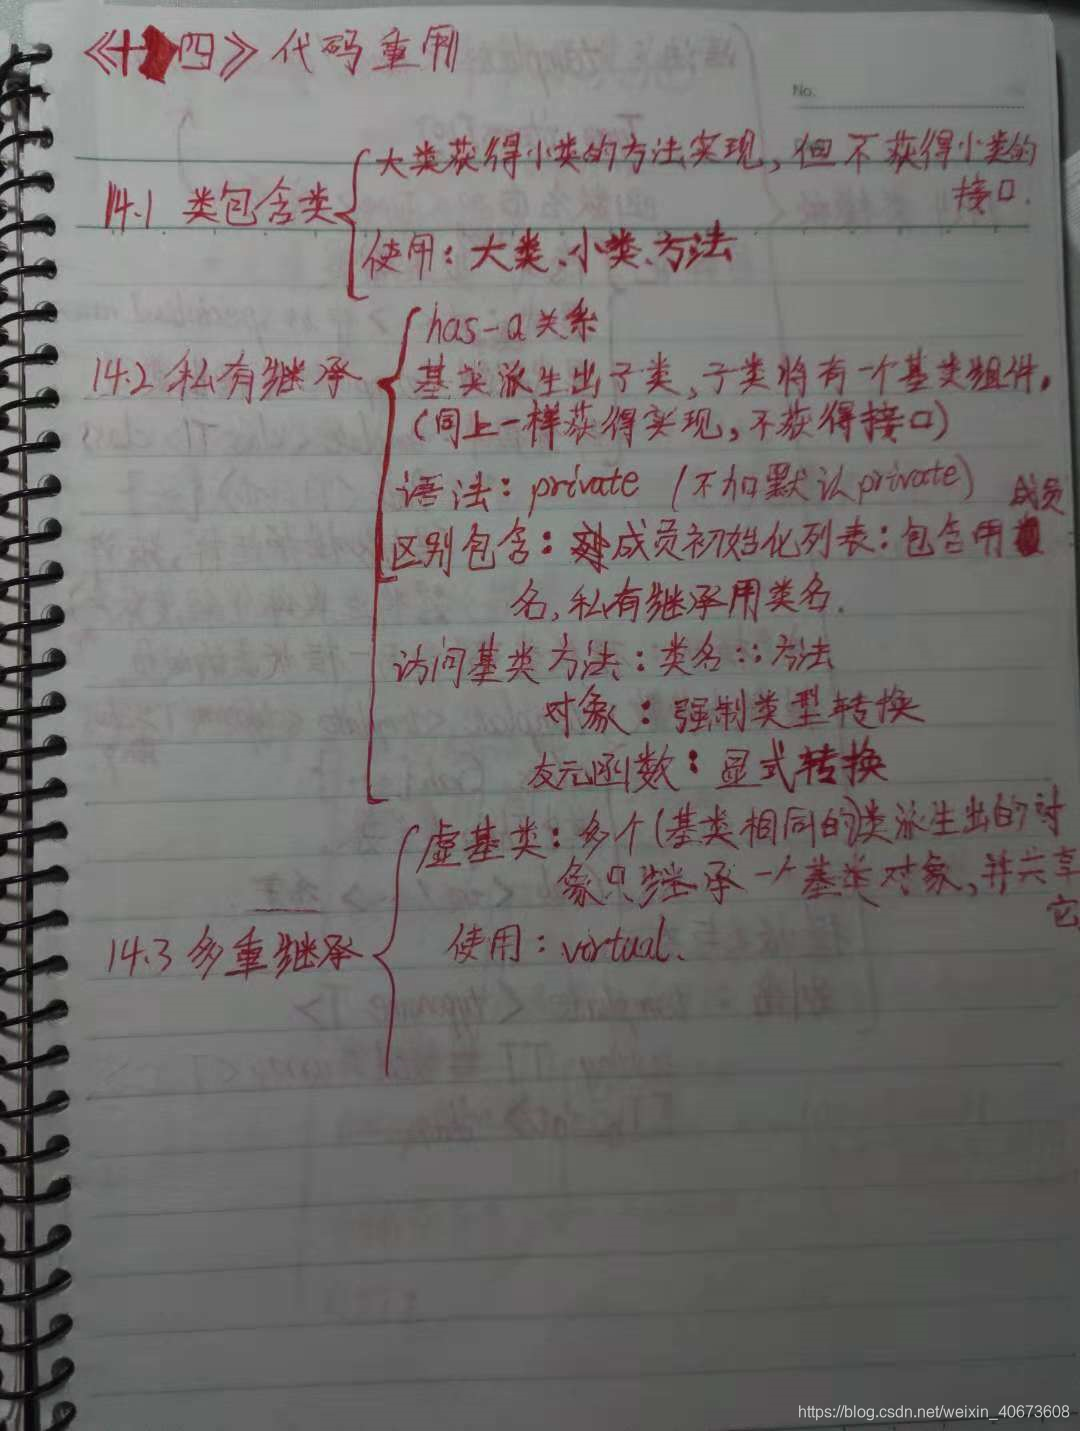 《十四》代码重用
No.
大类获得小类的方法实现，但不获得小类的
接口.
14.1 类包含类
使用：大类.小类.方法
has-a关系
14.2 私有继承
基类派生出子类，子类将有一个基类组件。
(同上一样获得实现，不获得接口)
语法：private (不加默认private)
成员
区别包含：成员初始化列表：包含用
名，私有继承用类名.
访问基类方法：类名::方法
对象：强制类型转换
友元函数：显式转换
虚基类：多个(基类相同的)类派生出的对
象只继承一个基类对象，并共享
它
14.3 多重继承
使用：virtual.
https://blog.csdn.net/weixin_40673608